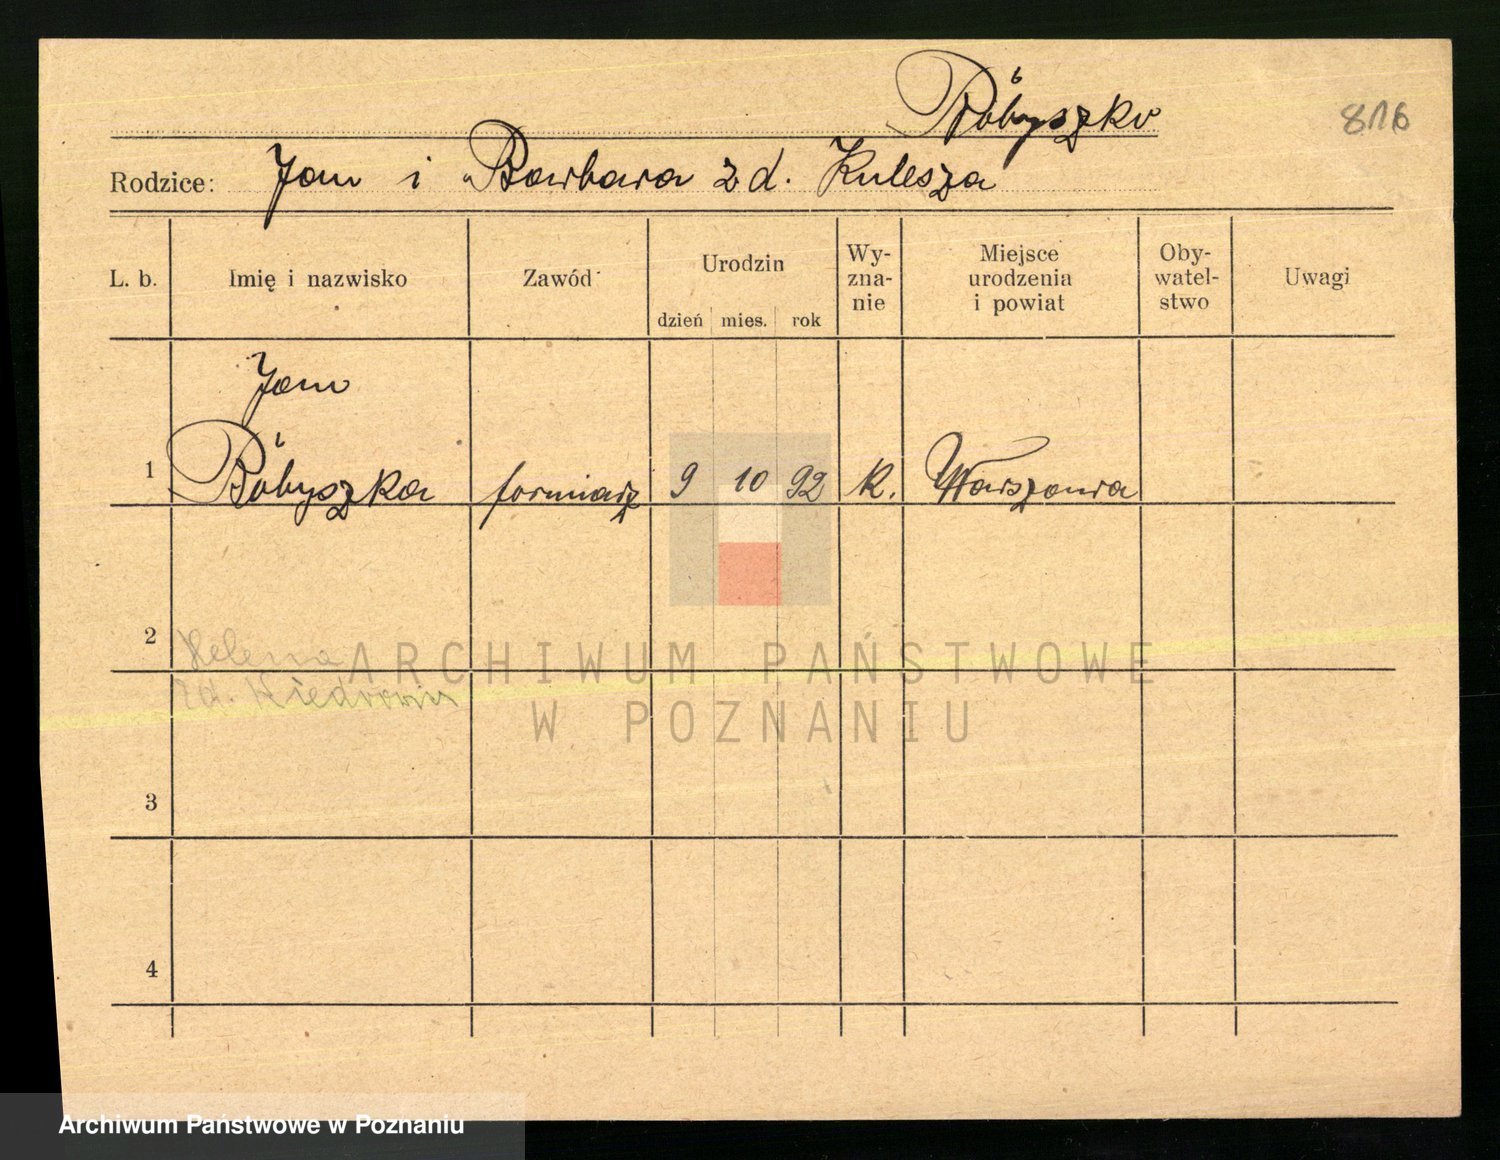 Bóbyszko
816
Rodzice: Jan i Barbara z d. Kulesza
L. b. Imię i nazwisko Zawód Urodzin dzień mies. rok Wyznanie Miejsce urodzenia i powiat Obywatelstwo Uwagi
Jan
1 Bóbyszka formiarz 9 10 92 k. Warszawa
2 Helena
zd.
3
4
ARCHIWUM PAŃSTWOWE
W POZNANIU
Archiwum Państwowe w Poznaniu